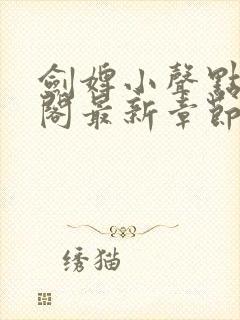 劍娉小聲點
閣最新章節
绣猫